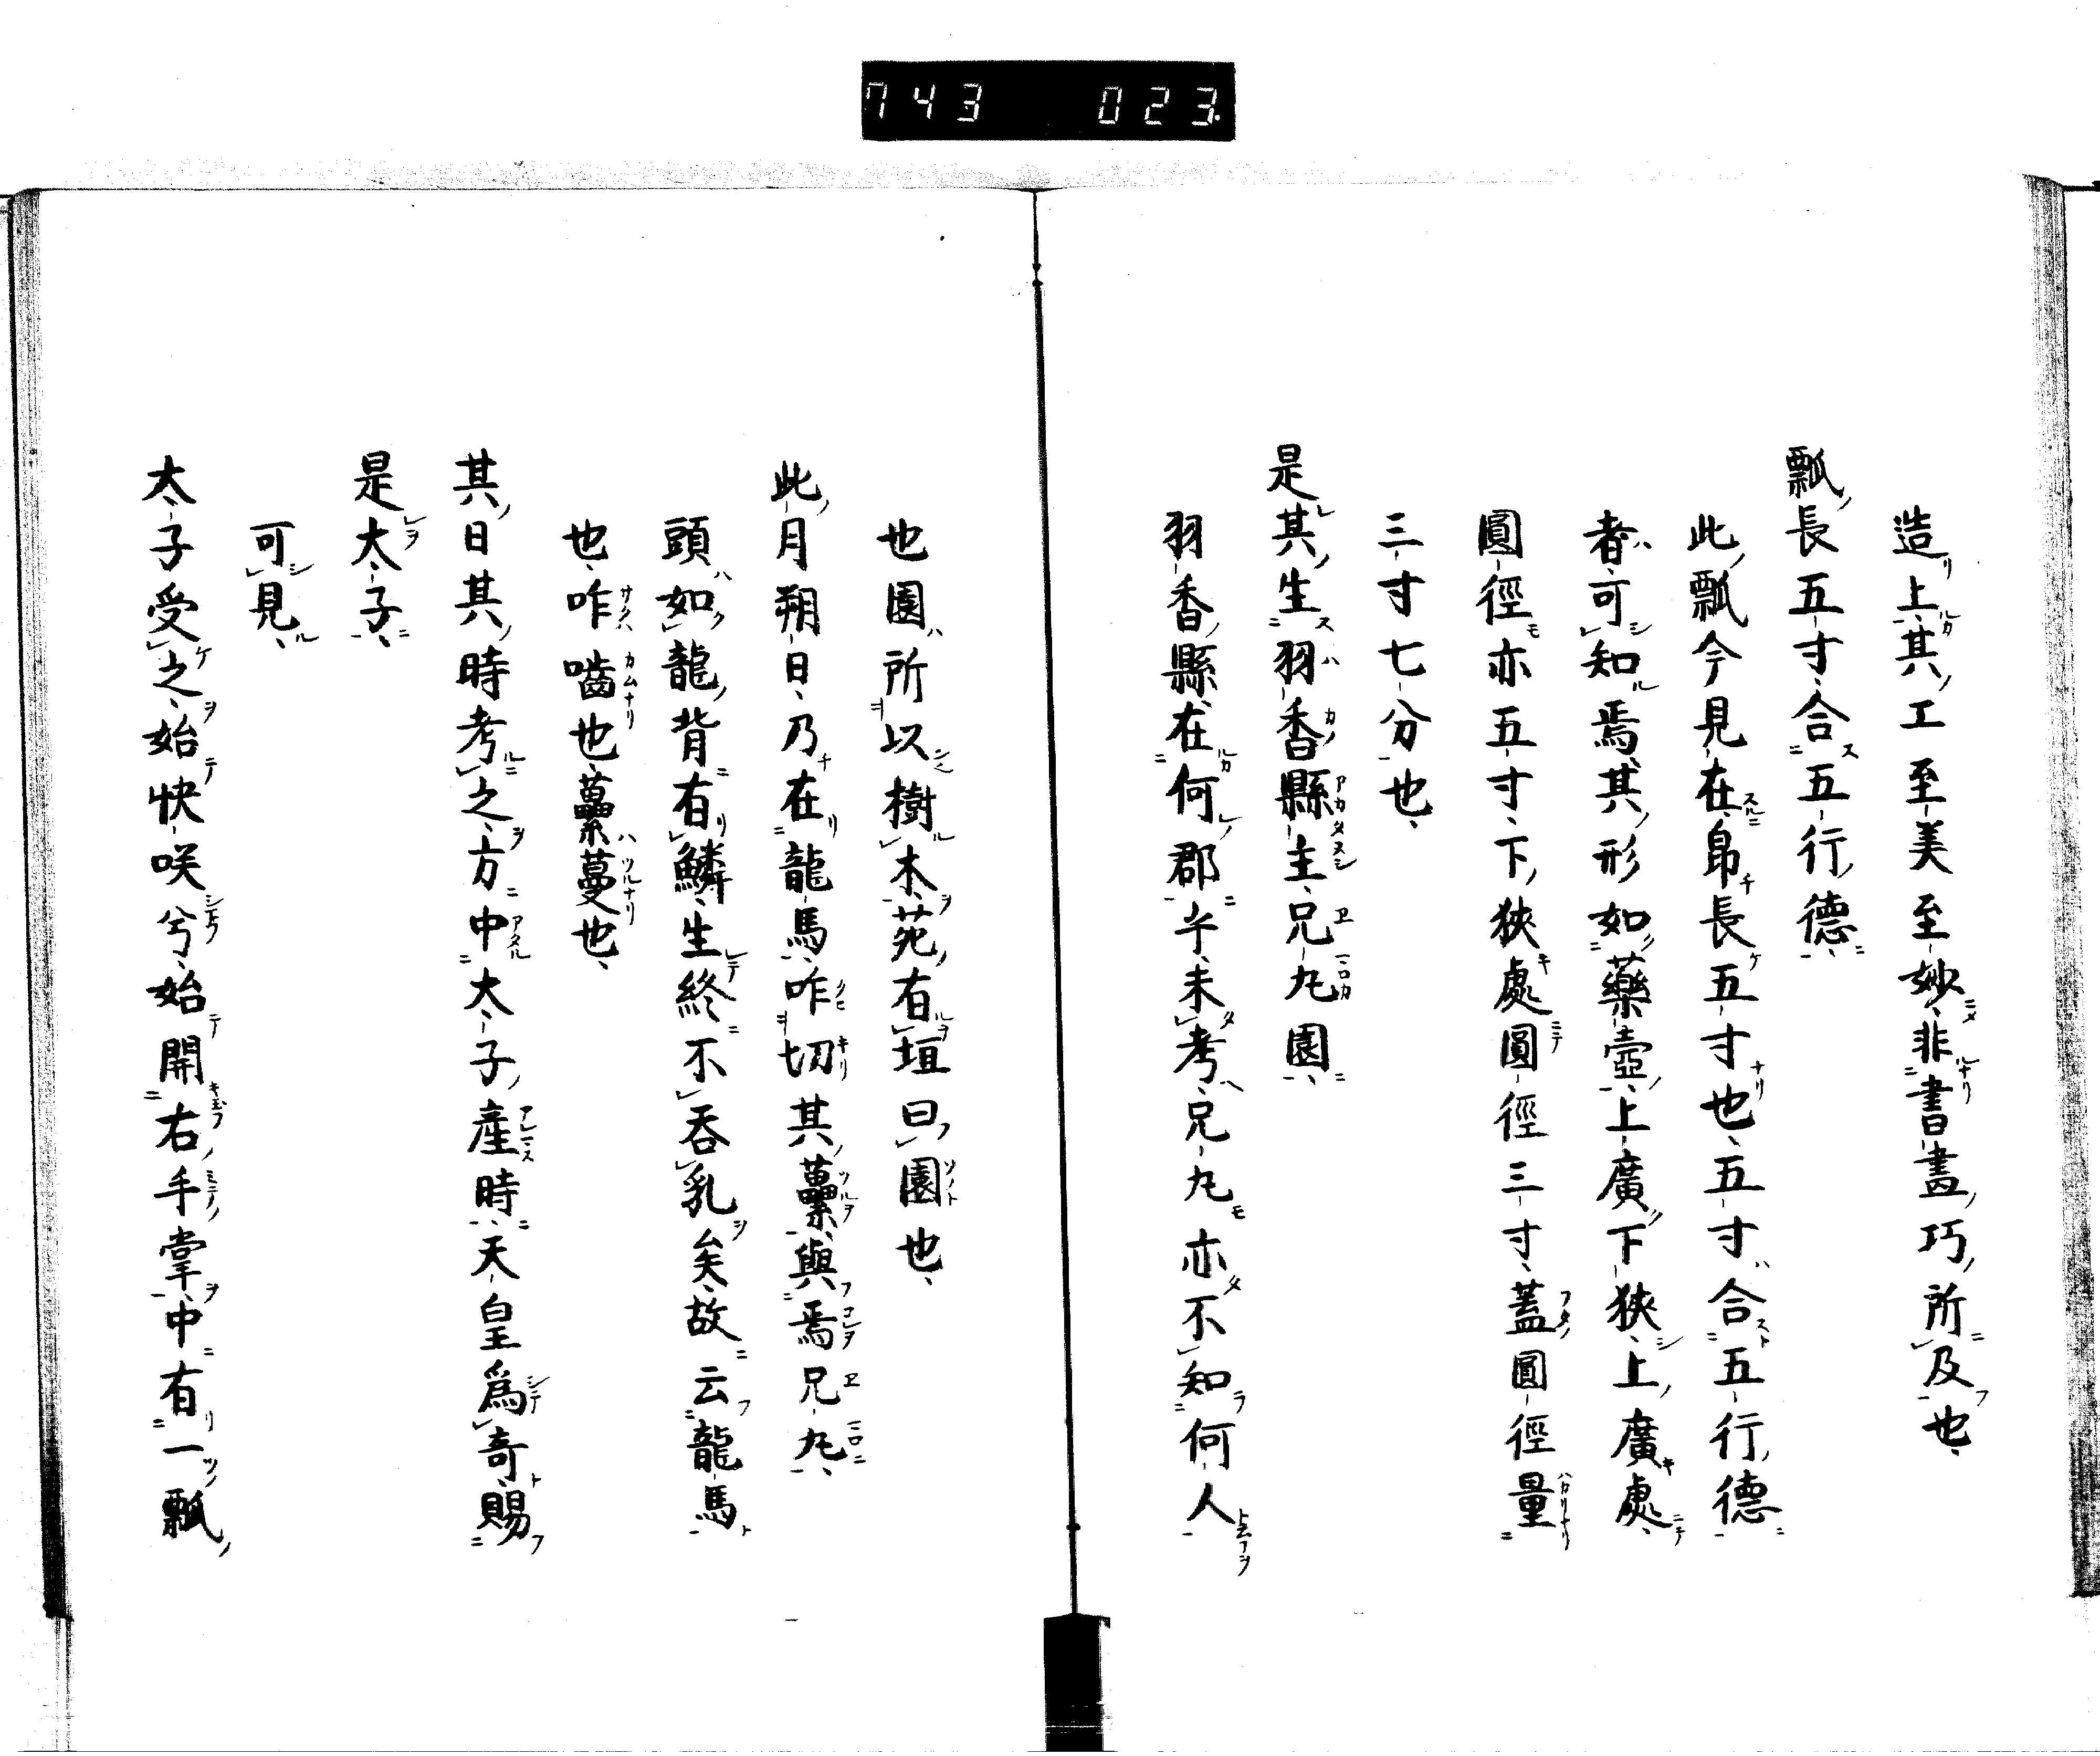 743 023
造上其工至美至妙非書畫巧所及也
瓢長五寸合五行德
此瓢今見在帛長五寸也五寸合五行德
者可知焉其形如藥壺上廣下狹上廣處
圓徑亦五寸下狹處圓徑三寸蓋圓徑量
三寸七分也
是其生羽香縣主兄丸園
羽香縣在何郡乎未考兄丸亦不知何人
也園所以樹木苑有垣曰園也
此月朔日乃在龍馬咋切其虆與焉兄丸
頭如龍背有鱗生終不吞乳矣故云龍馬
也咋嚙也虆蔓也
其日其時考之方中太子產時天皇爲奇賜
是太子
可見
太子受之始快咲兮始開右手掌中有一瓢